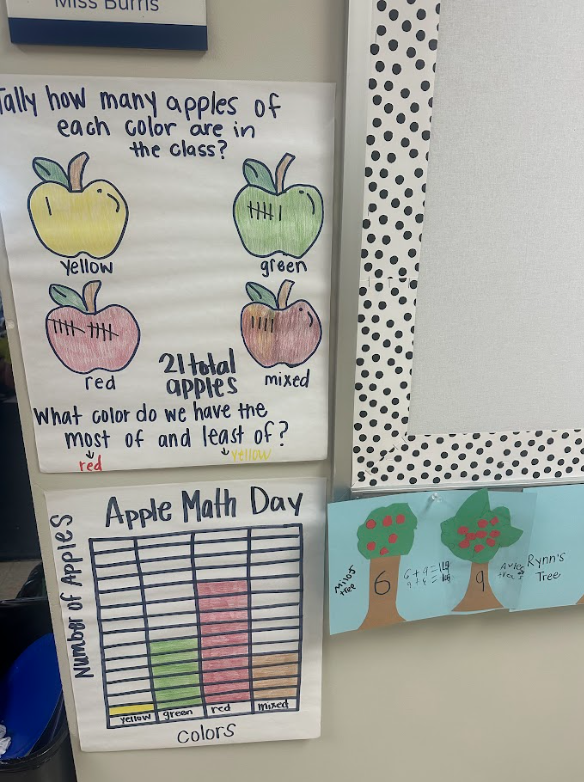 Miss Burris
Tally how many apples of
each color are in
the class?
yellow
green
red
mixed
21 total
apples
What color do we have the
most of and least of?
red
yellow
Apple Math Day
Number of Apples
yellow green red mixed
colors
6
9
Rynn's
Tree